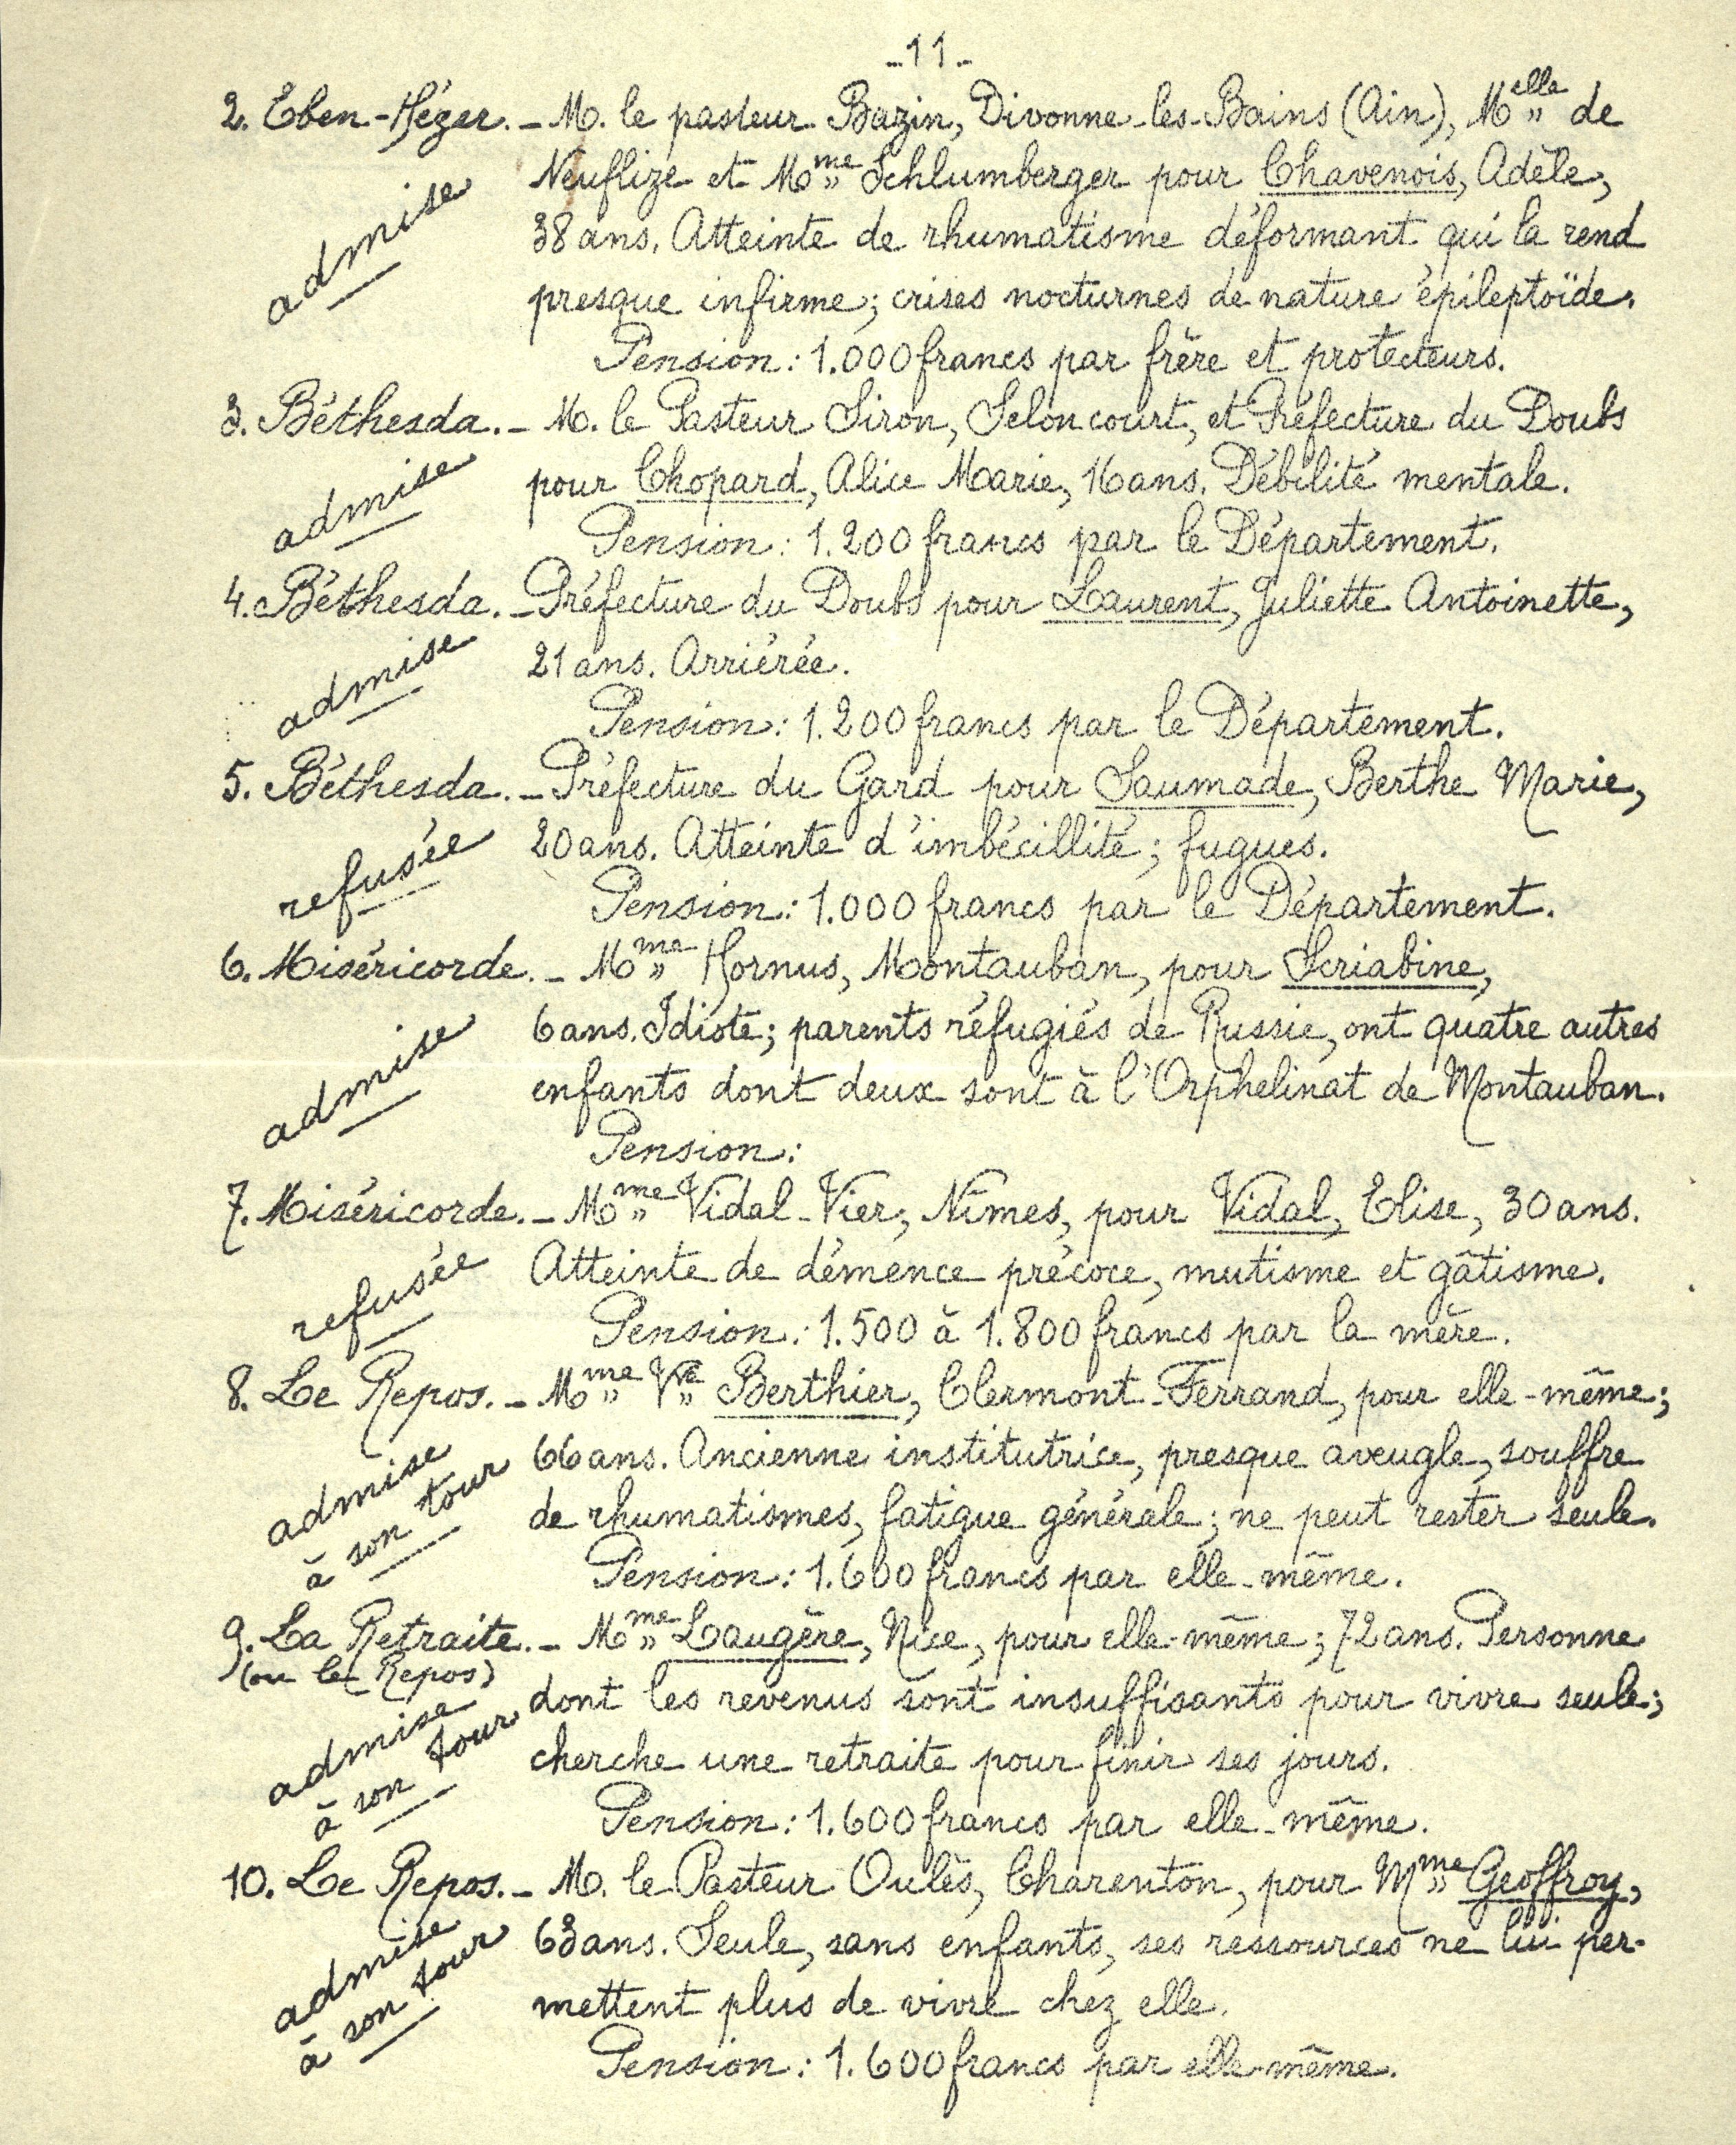 -11-
2. Eben-Hézer. - M. le pasteur Bazin, Divonne-les-Bains (Ain), Melle de
Neuflize et Mme Schlumberger pour Chavenois, Adèle,
38 ans. Atteinte de rhumatisme déformant qui la rend
admise
presque infirme; crises nocturnes de nature épileptoïde.
Pension: 1.000 francs par frère et protecteurs.
3. Béthesda. - M. le Pasteur Siron, Seloncourt, et Préfecture du Doubs
pour Chopard, Alice Marie, 16 ans. Débilité mentale.
admise
Pension: 1.200 francs par le Département.
4. Béthesda. - Préfecture du Doubs pour Laurent, Juliette Antoinette,
21 ans. Arriérée.
admise
Pension: 1.200 francs par le Département.
5. Béthesda. - Préfecture du Gard pour Saumade, Berthe Marie,
20 ans. Atteinte d'imbécillité; fugues.
refusée
Pension: 1.000 francs par le Département.
6. Miséricorde. - Mme Hornus, Montauban, pour Scriabine,
6 ans. Idiote; parents réfugiés de Russie, ont quatre autres
admise
enfants dont deux sont à l'Orphelinat de Montauban.
Pension:
7. Miséricorde. - Mme Vidal-Vier, Nîmes, pour Vidal, Elise, 30 ans.
Atteinte de démence précoce, mutisme et gâtisme.
refusée
Pension: 1.500 à 1.800 francs par la mère.
8. Le Repos. - Mme Vve Berthier, Clermont-Ferrand, pour elle-même;
66 ans. Ancienne institutrice, presque aveugle, souffre
admise
à son tour
de rhumatismes, fatigue générale; ne peut rester seule.
Pension: 1.600 francs par elle-même.
9. La Retraite. - Mme Laugère, Nice, pour elle-même; 72 ans. Personne
(ou le Repos)
dont les revenus sont insuffisants pour vivre seule;
admise
à son tour
cherche une retraite pour finir ses jours.
Pension: 1.600 francs par elle-même.
10. Le Repos. - M. le Pasteur Oulès, Charenton, pour Mme Geoffroy,
63 ans. Seule, sans enfants, ses ressources ne lui per-
admise
à son tour
mettent plus de vivre chez elle.
Pension: 1.600 francs par elle-même.